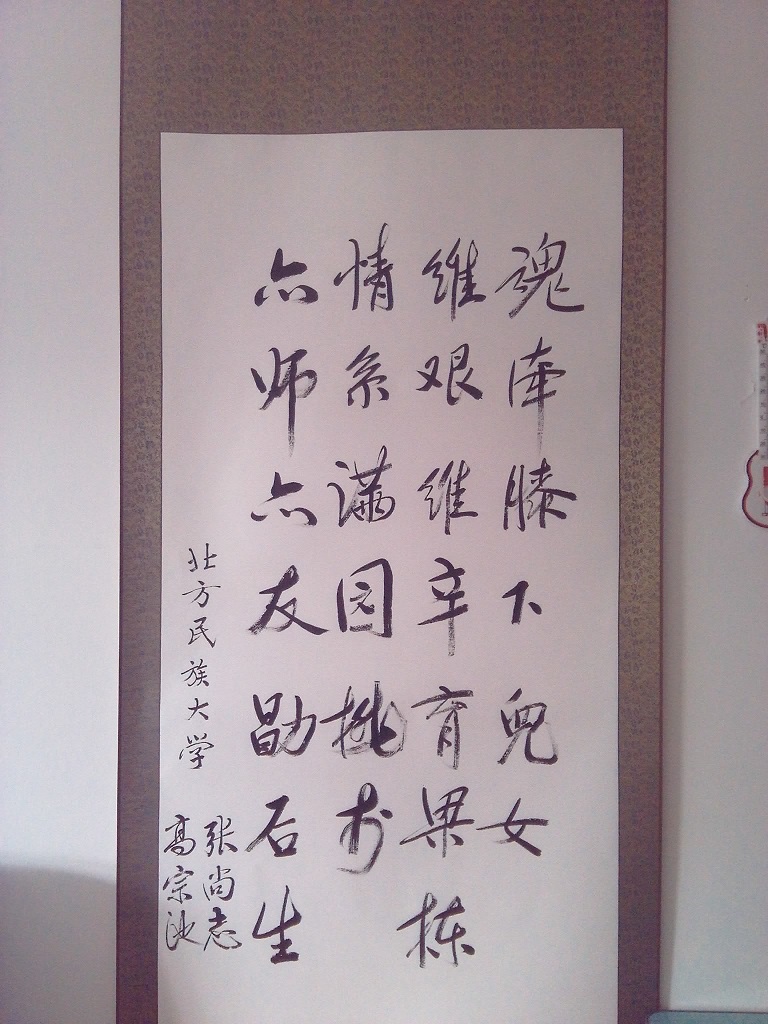 魂牵膝下兒女
维艰维辛育梁栋
情系满园桃李
亦师亦友勖后生
北方民族大学
张尚志
高宗